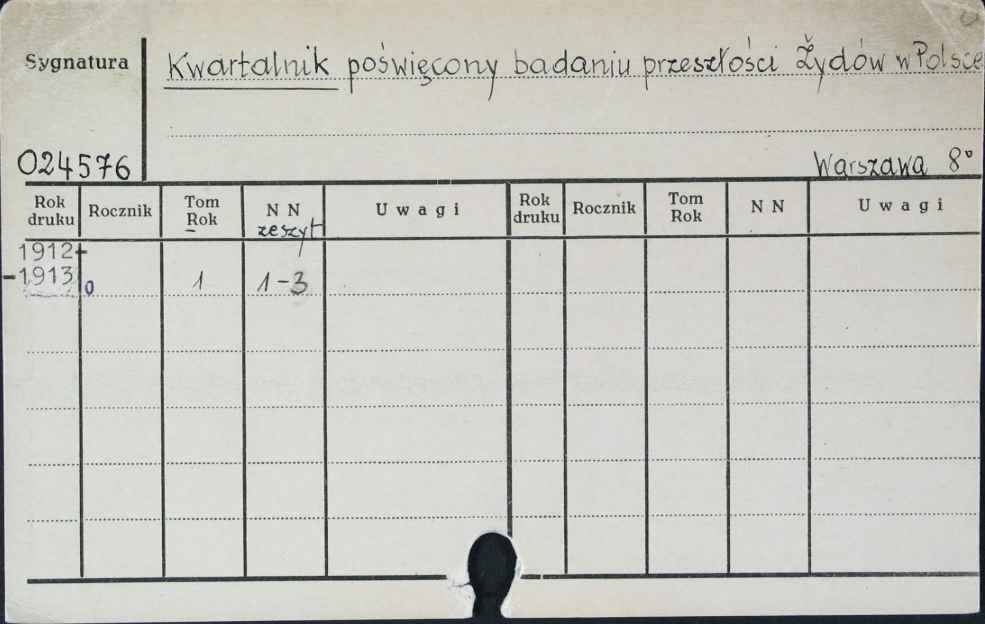 Sygnatura
Kwartalnik poświęcony badaniu przeszłości Żydów w Polsce
024576
Warszawa 8°
Rok druku Rocznik Tom Rok N N zeszyt Uwagi Rok druku Rocznik Tom Rok N N Uwagi
1912-
-1913 0 1 1-3